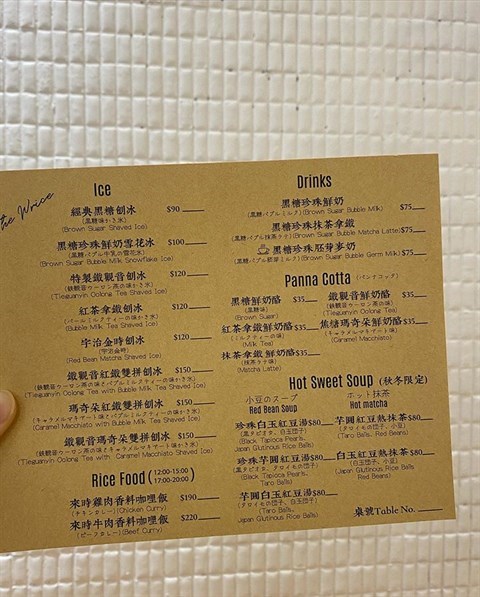 the Wrice
Ice
經典黑糖刨冰 $90
(黒糖味かき氷)
(Brown Sugar Shaved Ice)
黑糖珍珠鮮奶雪花冰 $100
(黒糖バブル牛乳の雪花氷)
(Brown Sugar Bubble Milk Snowflake Ice)
特製鐵觀音刨冰 $120
(鉄観音ウーロン茶の味かき氷)
(Tieguanyin Oolong Tea Shaved Ice)
紅茶拿鐵刨冰 $120
(パールミルクティーの味かき氷)
(Bubble Milk Tea Shaved Ice)
宇治金時刨冰 $120
(宇治金時)
(Red Bean Matcha Shaved Ice)
鐵觀音紅鐵雙拼刨冰 $150
(鉄観音ウーロン茶の味とバブルミルクティーの味かき氷)
(Tieguanyin Oolong Tea with Bubble Milk Tea Shaved Ice)
瑪奇朵紅鐵雙拼刨冰 $150
(キャラメルマキアート味とバブルミルクティーの味かき氷)
(Caramel Macchiato with Bubble Milk Tea Shaved Ice)
鐵觀音瑪奇朵雙拼刨冰 $150
(鉄観音ウーロン茶の味とキャラメルマキアート味かき氷)
(Tieguanyin Oolong Tea with Caramel Macchiato Shaved Ice)
Rice Food (12:00-15:00
17:00-20:00)
來時雞肉香料咖哩飯 $190
(チキンカレー)(Chicken Curry)
來時牛肉香料咖哩飯 $220
(ビーフカレー)(Beef Curry)
Drinks
黑糖珍珠鮮奶 $75
(黒糖バブルミルク)(Brown Sugar Bubble Milk)
黑糖珍珠抹茶拿鐵 $75
(黒糖バブル抹茶ラテ)(Brown Sugar Bubble Matcha Latte)
黑糖珍珠胚芽麥奶 $75
(Brown Sugar Bubble Germ Milk)
Panna Cotta (パンナコッタ)
黑糖鮮奶酪 $35
(黒糖味)
(Brown Sugar)
鐵觀音鮮奶酪 $35
(鉄観音ウーロン茶の味)
(Tieguanyin Oolong Tea)
紅茶拿鐵鮮奶酪 $35
(ミルクティーの味)
(Milk Tea)
焦糖瑪奇朵鮮奶酪 $35
(キャラメルマキアート味)
(Caramel Macchiato)
抹茶拿鐵鮮奶酪 $35
(抹茶ラテ味)
(Matcha Latte)
Hot Sweet Soup (秋冬限定)
小豆のスープ
Red Bean Soup
ホット抹茶
Hot matcha
珍珠白玉紅豆湯 $80
(黒タピオカ、白玉団子)
(Black Tapioca Pearls,
Japan Glutinous Rice Balls)
芋圓紅豆熱抹茶 $80
(タロイモの団子、小豆)
(Taro Balls, Red Beans)
珍珠芋圓紅豆湯 $80
(黒タピオカ、タロイモの団子)
(Black Tapioca Pearls,
Taro Balls)
白玉紅豆熱抹茶 $80
(白玉団子、小豆)
(Japan Glutinous Rice Balls
Red Beans)
芋圓白玉紅豆湯 $80
(タロイモの団子、白玉団子)
(Taro Balls,
Japan Glutinous Rice Balls)
桌號Table No.